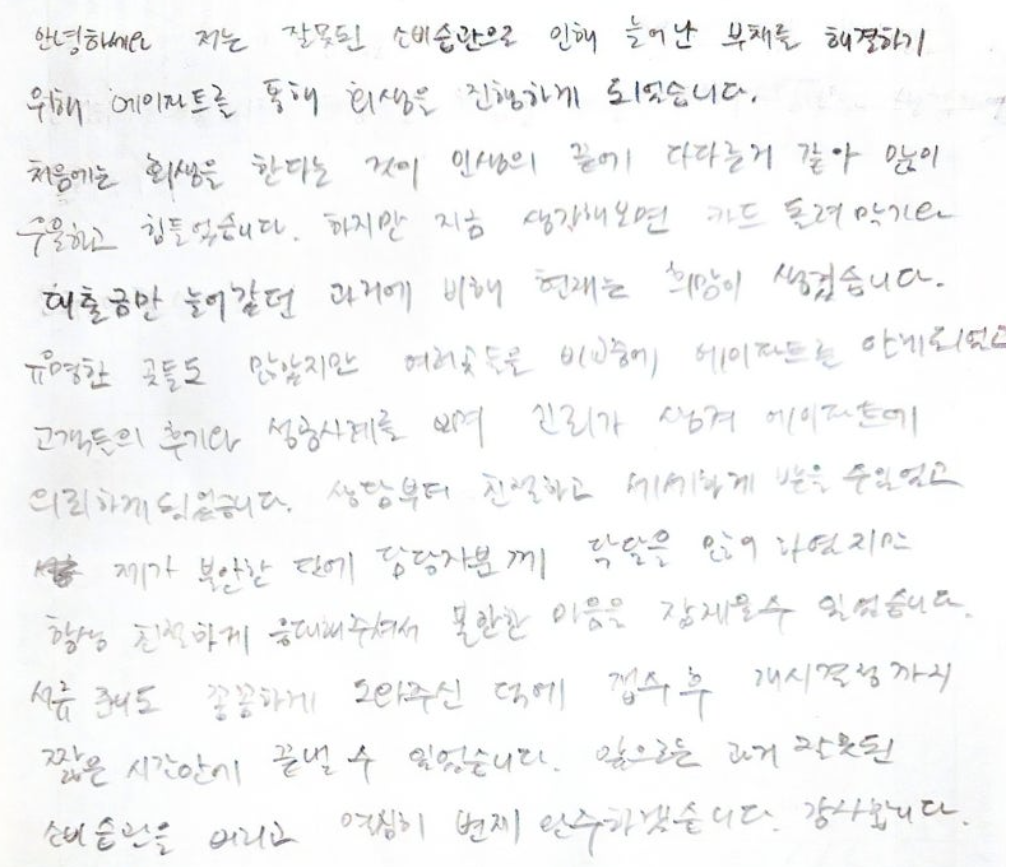 안녕하세요 저는 잘못된 소비습관으로 인해 늘어난 부채를 해결하기
위해 에이파트를 통해 회생을 진행하게 되었습니다.
처음에는 회생을 한다는 것이 인생의 끝에 다다른거 같아 많이
우울하고 힘들었습니다. 하지만 지금 생각해보면 카드 돌려막기와
대출금만 늘어갔던 과거에 비해 현재는 희망이 생겼습니다.
유명한 곳들도 많았지만 여러곳들을 비교중에 에이파트를 알게되었고
고객들의 후기와 성공사례를 보며 신뢰가 생겨 에이파트에
의뢰하게 되었습니다. 상담부터 친절하고 세세하게 받을 수있었고
제가 불안한 탓에 담당자분께 닥달을 많이 하였지만
항상 친절하게 응대해주셔서 불안한 마음을 잠재울수 있었습니다.
서류 준비도 꼼꼼하게 도와주신 덕에 접수 후 개시결정까지
짧은 시간안에 끝낼 수 있었습니다. 앞으로는 과거 잘못된
소비습관을 버리고 열심히 변제 완수하겠습니다. 감사합니다.